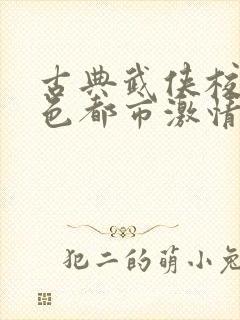 古典武侠校
色都市激情
犯二的萌小兔